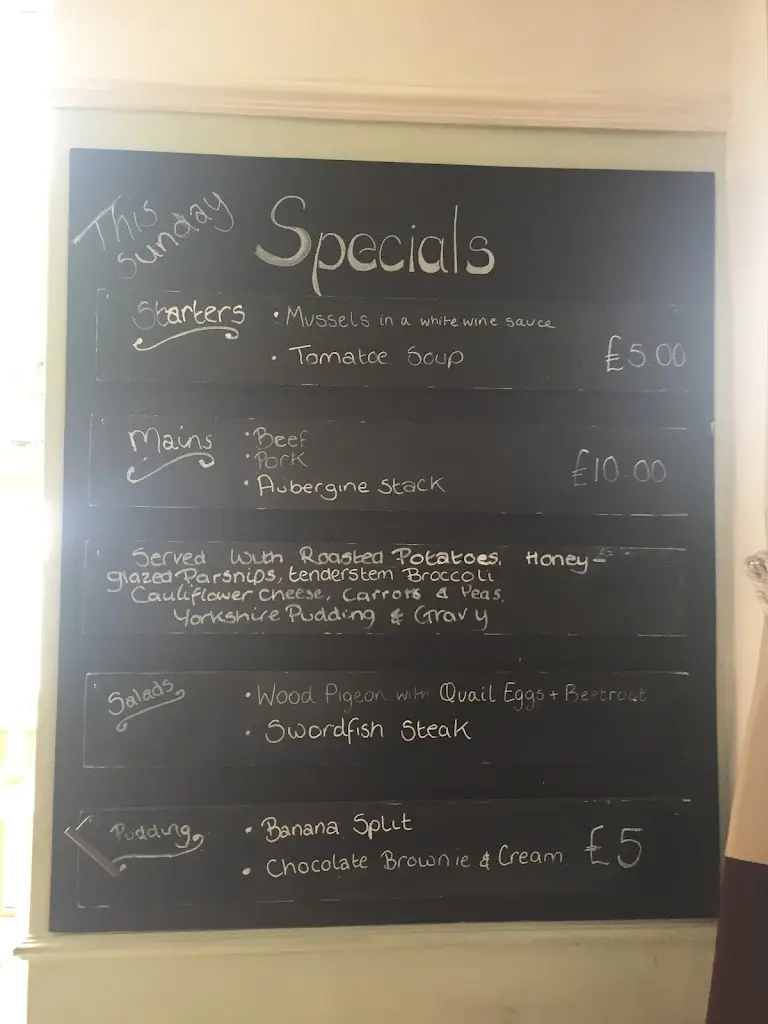 This
Sunday
Specials
Starters
• Mussels in a white wine sauce
• Tomatoe Soup
£5.00
Mains
• Beef
• Pork
• Aubergine Stack
£10.00
Served with Roasted Potatoes, Honey-
glazed Parsnips, tenderstem Broccoli
Cauliflower cheese, Carrots & Peas,
Yorkshire Pudding & Gravy
Salads
• Wood Pigeon with Quail Eggs + Beetroot
• Swordfish Steak
Pudding
• Banana Split
• Chocolate Brownie & Cream
£5